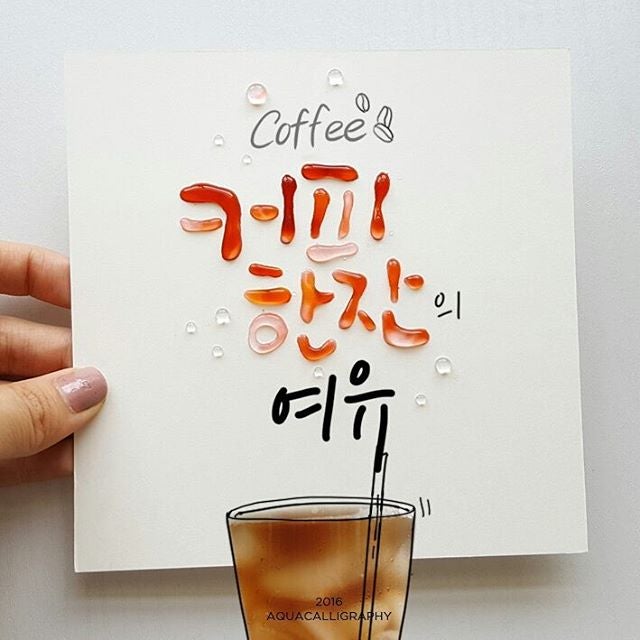 Coffee
커피
한잔의
여유
2016
AQUACALLiGRAPHY